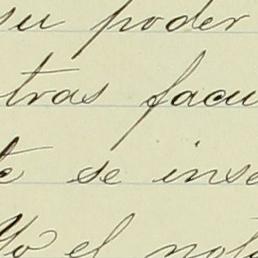 su poder
tras facu
te se inse
Yo el nota